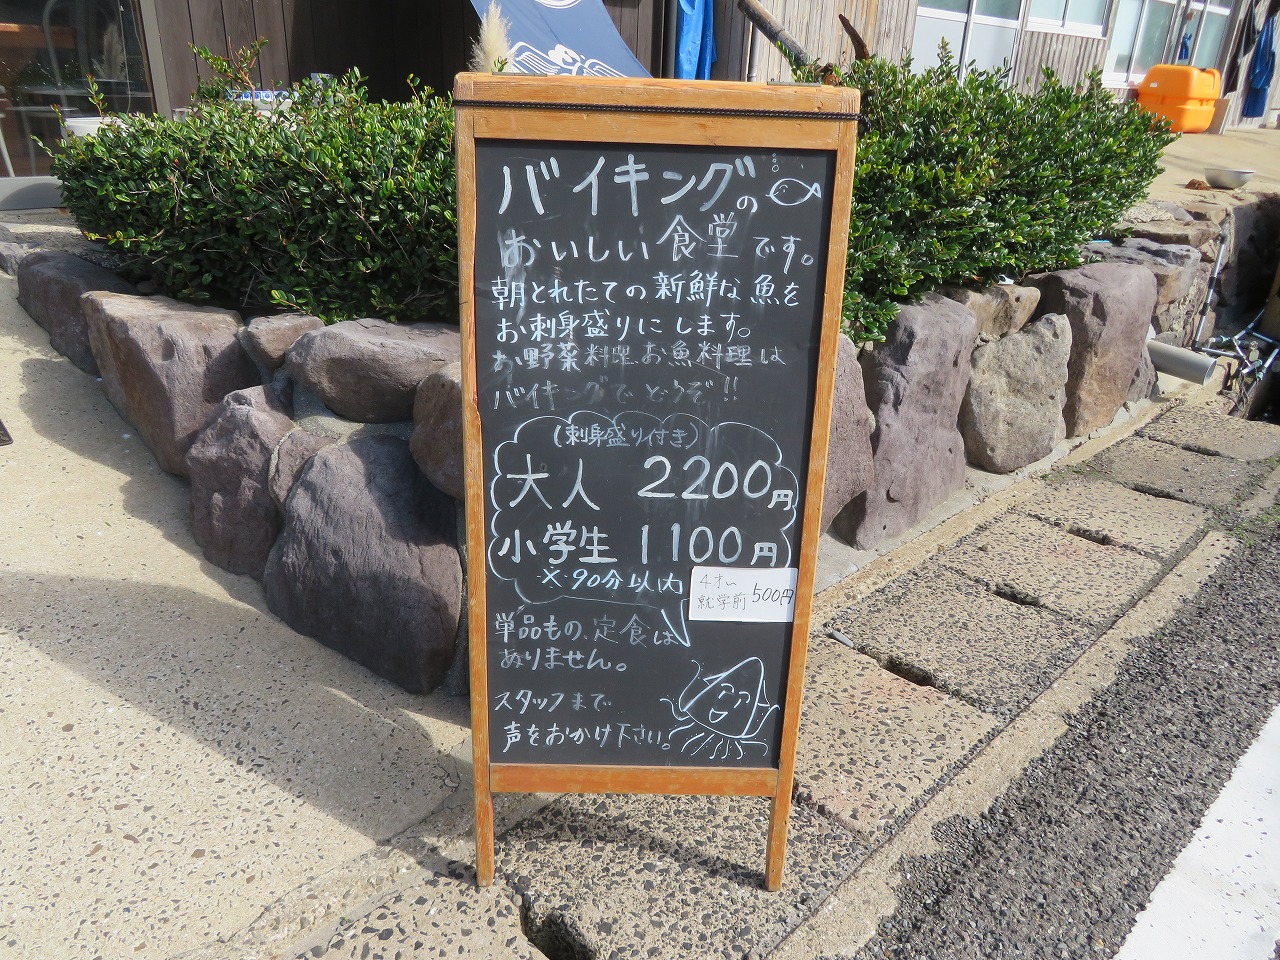 バイキングの
おいしい食堂です。
朝とれたての新鮮な魚を
お刺身盛りにします。
お野菜料理、お魚料理は
バイキングでどうぞ!!
(刺身盛り付き)
大人 2200円
小学生 1100円
※90分以内
4才〜
就学前 500円
単品もの、定食は
ありません。
スタッフまで
声をおかけ下さい。